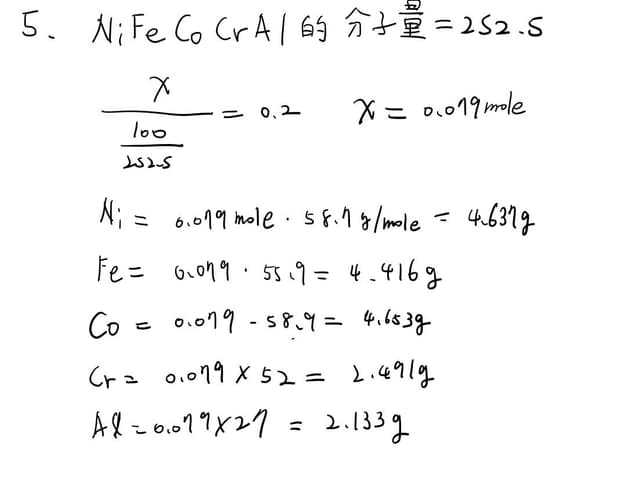 5. NiFeCoCrAl的分子量=252.5
x / (100/252.5) = 0.2 x = 0.079mole
Ni = 0.079 mole · 58.7 g/mole = 4.637g
Fe = 0.079 · 55.9 = 4.416g
Co = 0.079 - 58.9 = 4.653g
Cr = 0.079 × 52 = 2.491g
Al = 0.079×27 = 2.133g